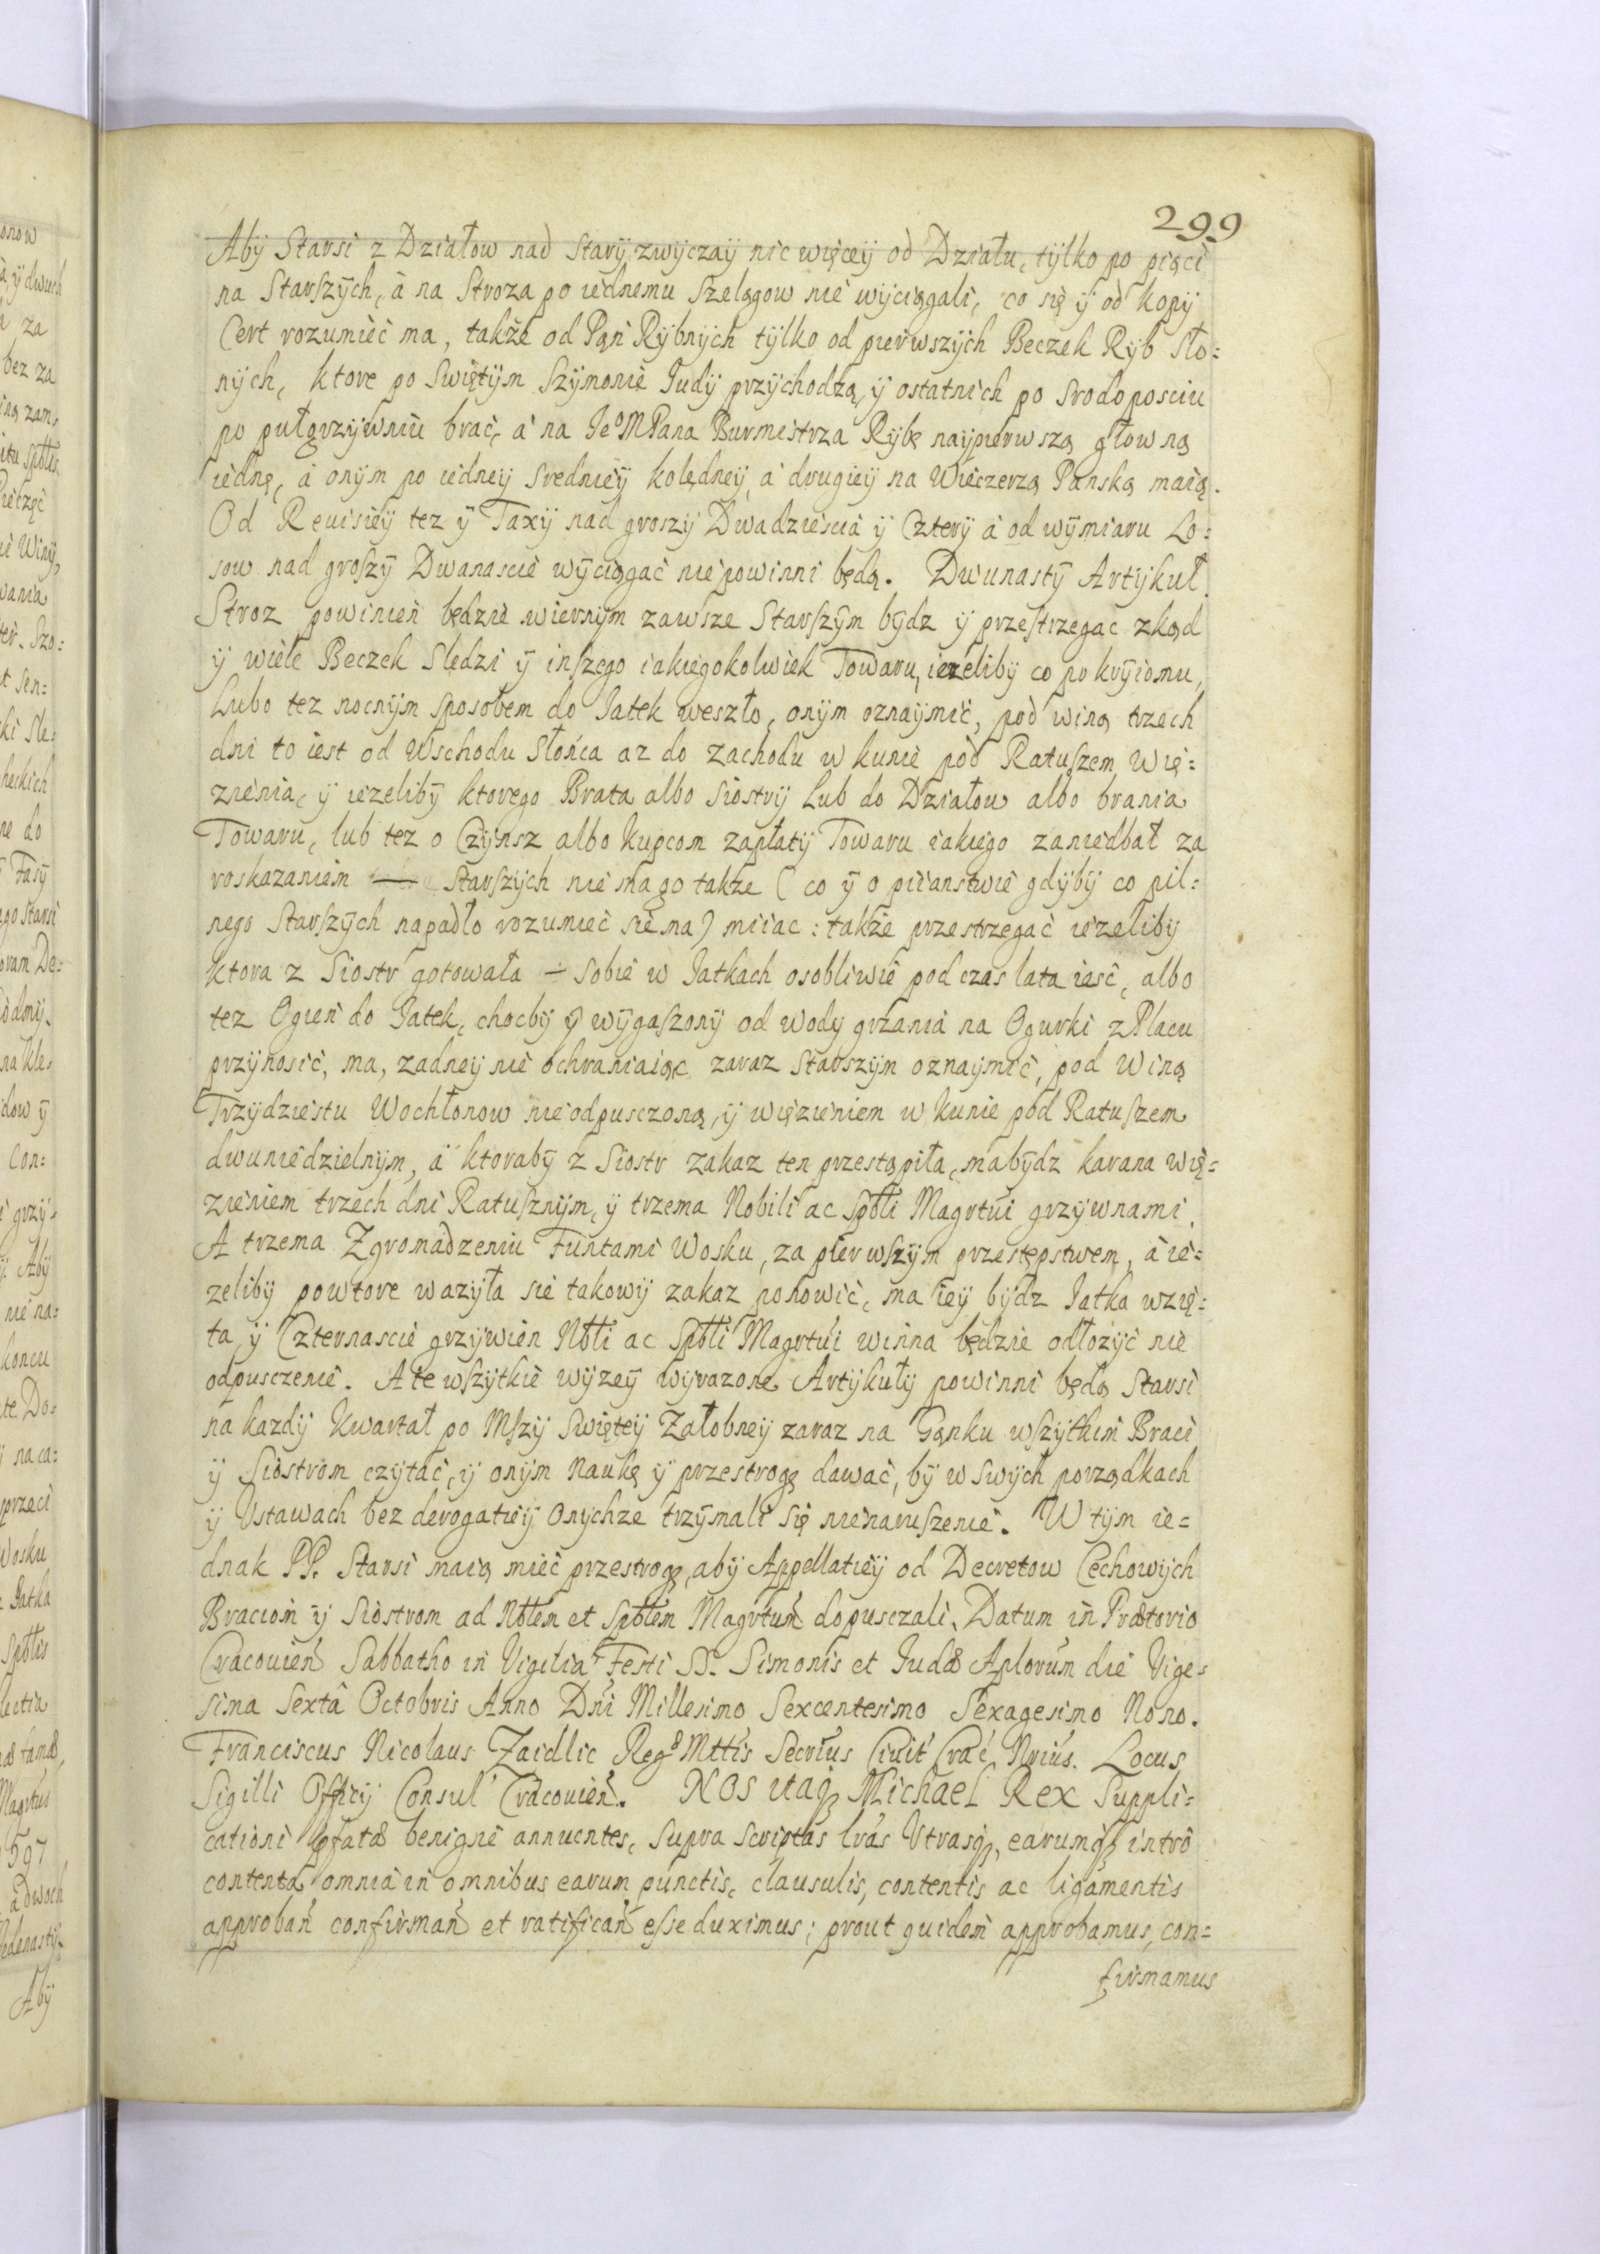 299
Aby Starsi z Działow nad stary zwyczay nic więcey od Działu, tylko po piąci
na Starszych, à na Stroza po iednemu szelągow nie wyciągali, co się y od kopy
Cert rozumieć ma, także od Pąń Rybnych tylko od pierwszych Beczek Ryb Sło=
nych, ktore po Swiętym Szymonie Iudy przychodzą, y ostatnich po srodoposciu
po pułgrzywniu brać, à na Ieº MPana Burmistrza Rybę naypierwszą głowną
iednę, à onym po iedney sredniey kolędney, à drugiey na Wieczerzą Panską maią.
Od Reuisiey tez y Taxy nad groszy Dwadziescia y Cztery à od wymiaru Lo=
sow nad groszy Dwanascie wyciągać niepowinni będą. Dwunasty Artykuł.
Stroz powinień będzie wiernym zawsze Starszym bydz y przestrzegac zkąd
y wiele Beczek Sledzi y inszego iakiegokolwiek Towaru, iezeliby co pokryiomu,
Lubo tez nocnym sposobem do Iatek weszło, onym oznaymić, pod winą trzech
dni to iest od Wschodu Słońca az do zachodu w kunie pod Ratuszem Wię=
zienia, y iezeliby ktorego Brata albo Siostry Lub do Działow albo brania
Towaru, lub tez o Czynsz albo Kupcom zapłaty Towaru iakiego zaniedbał za
roskazaniem — Starszych nie ma go takze ( co y o piianstwie gdyby co pil=
nego Starszych napadło rozumieć się ma ) miiac: także przestrzegać iezeliby
ktora z Siostr gotowała ÷ sobie w Iatkach osobliwie pod czas lata ieść, albo
tez Ogień do Iatek, chocby y wygaszony od wody grzania na Ogurki z Placu
przynosić, ma, zadney nie ochraniaiąc zaraz starszym oznaymić, pod Winą
Trzydziestu Wochłonow nieodpusczoną, y więzieniem w kunie pod Ratuszem
dwuniedzielnym, à ktoraby z Siostr zakaz ten przestąpiła, ma bydz karana wię=
zieniem trzech dni Ratusznym, y trzema Nobili ac Spbli Magrtui grzywnami.
A trzema Zgromadzeniu Funtami Wosku, za pierwszym przestępstwem, à ie=
zeliby powtore wazyła się takowy zakaz ponowić, ma iey bydz Iatka wzię=
ta, y Czternascie grzywien Nbli ac Spbli Magrtui winna będzie odłożyć nie
odpusczenie. A te wszytkie wyzey wyrazone Artykuły powinni będą Starsi
na kazdy Kwartał po Mszy Swiętey Załobney zaraz na Gąnku wszytkim Braci
y Siostrom czytać, y onym naukę y przestrogę dawać, by w swych porządkach
y Ustawach bez derogatiey onychze trzymali się nienaruszenie. W tym ie=
dnak PP. Starsi maią mieć przestrogę, aby Appellatiey od Decretow Cechowych
Braciom y Siostrom ad Nblem et Spblem Magrtum dopusczali. Datum in Prætorio
Cracouień Sabbatho in Vigilia Festi SS. Simonis et Iudæ Aplorum die Vige=
sima Sexta Octobris Anno Dni Millesimo Sexcentesimo Sexagesimo Nono.
Franciscus Nicolaus Zaidlic Regæ Mttis Secrius Ciuit Crac Nrius. Locus
Sigilli Officij Consul Cracouień. NOS itaq Michael Rex Suppli=
cationi pfatæ benigne annuentes, supra scriptas lras Utrasq, earumq intro
contenta omnia in omnibus earum punctis, clausulis, contentis ac ligamentis
approbań confirmań et ratificań esse duximus; prout quidem approbamus, con=
firmamus